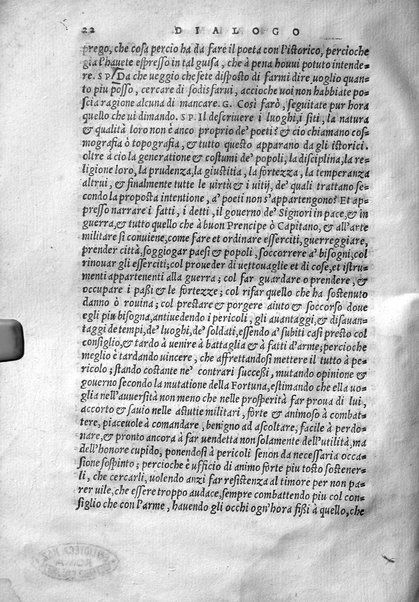 22 DIALOGO
prego, che cosa percio ha da fare il poeta con l'istorico, percioche
gia l'hauete espresso in tal guisa, che à pena houui potuto intende-
re. SP. Da che ueggio che sete disposto di farmi dire, uoglio quan-
to piu posso, cercare di sodisfarui, accioche uoi non habbiate po-
scia ragione alcuna di mancare. G. Così farò, seguitate pur hora
quello che ui dimando. SP. Il descriuere i luoghi, i siti, la natura
& qualità loro non è anco proprio de' poeti? & cio chiamano cos-
mografia ò topografia, & tutto questo apparano da gli istorici.
oltre à cio la generatione & costumi de' popoli, la disciplina, la re-
ligione loro, la prudenza, la giustitia, la fortezza, la temperanza
altrui, & finalmente tutte le uirtù & i uitij, de' quali trattano se-
condo la proposta intentione, à poeti non s'appartengono? Et ap-
presso narrare i fatti, i detti, il gouerno de' Signori in pace, & in
guerra, & tutto quello che à buon Prencipe ò Capitano, & all'arte
militare si conuiene, come fare et ordinare esserciti, guerreggiare,
prender città, soggiogar paesi & popoli, soccorrere à' bisogni, col
rinouar gli esserciti; col prouedere di uettouaglie et di cose, et istru-
menti appartenenti alla guerra; col far guardare o prendere, &
occupare i passi & le fortezze; col rifar quello che ha sostenuto
danno ò rouina; col prestare & porgere aiuto & soccorso doue
egli piu bisogna, antiuedendo i pericoli, gli auantaggi, et disauan-
taggi de tempi, de' luoghi, de' soldati, essendo a' subiti casi presto col
consiglio, & tardo à uenire à battaglia & à fatti d'arme; percioche
meglio è tardando uincere, che affrettandosi mettere il tutto à pe-
ricolo; stando costante ne' contrari successi, mutando opinione &
gouerno secondo la mutatione della Fortuna, estimando che ella uo-
glia nell'auuersità non meno che nelle prosperità far proua di lui,
accorto & sauio nelle astutie militari, forte & animoso à combat-
tere, piaceuole à comandare, benigno ad ascoltare, facile à perdo-
nare, & pronto ancora à far uendetta non solamente dell'utilità, ma
dell'honore cupido, ponendosi à pericoli senon da necessaria occa-
sione sospinto; percioche è ufficio di animo forte piu tosto sostener-
li, che cercarli, uolendo anzi far resistenza al timore per non pa-
rer uile, che essere troppo audace, sempre combattendo piu col con-
siglio che con l'arme, hauendo gli occhi ogn'hora fissi à quello, che